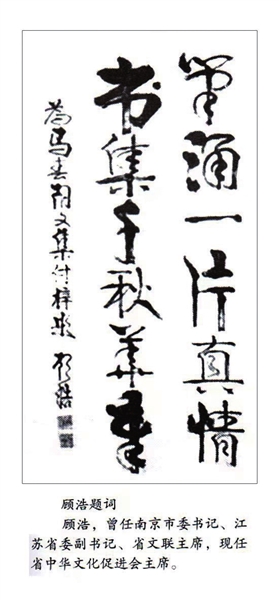 筆涌一片真情
书集千秋華章
为马春阳文集付梓题 顾浩
顾浩题词
顾浩，曾任南京市委书记、江
苏省委副书记、省文联主席，现任
省中华文化促进会主席。